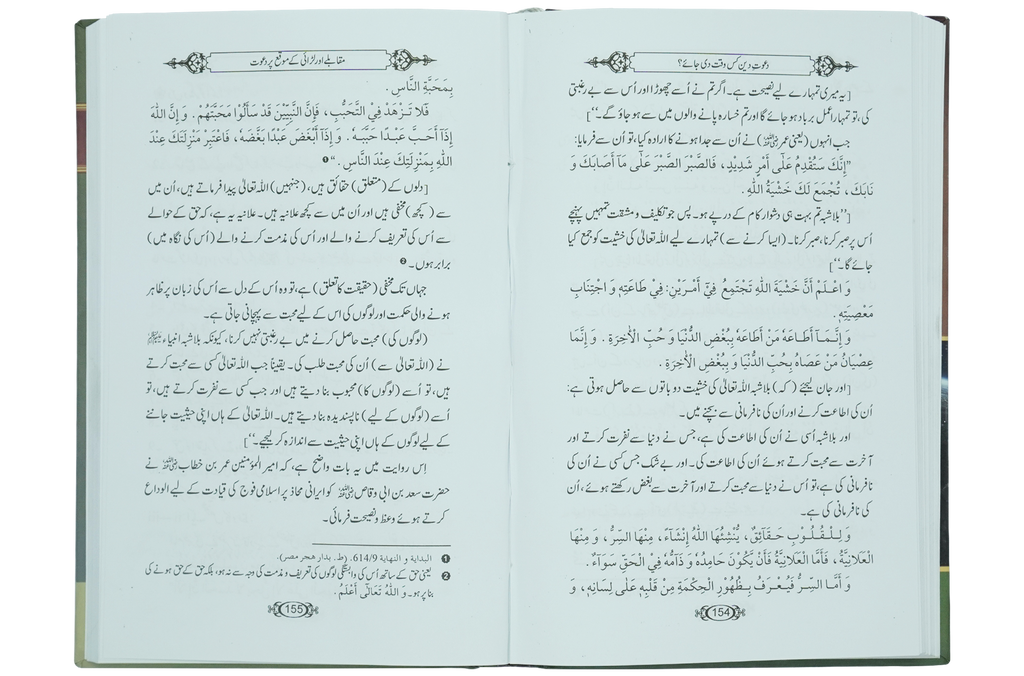 دعوتِ دین کس وقت دی جائے؟
[یہ میری تمہارے لیے نصیحت ہے۔ اگر تم نے اُسے چھوڑا اور اُس سے بے رغبتی
کی، تو تمہارا عمل برباد ہو جائے گا اور تم خسارہ پانے والوں میں سے ہو جاؤ گے۔‘‘]
جب انہوں (یعنی عمر رضی اللہ عنہ) نے اُن سے جدا ہونے کا ارادہ کیا، تو اُن سے فرمایا:
”إِنَّكَ سَتُقْدِمُ عَلٰٓى أَمْرٍ شَدِيْدٍ، فَالصَّبْرَ الصَّبْرَ عَلٰى مَآ أَصَابَكَ وَ
نَابَكَ، تُجْمَعَ لَكَ خَشْيَةُ اللّٰهِ.
[’’بلاشبہ تم بہت ہی دشوار کام کے درپے ہو۔ پس جو تکلیف و مشقت تمہیں پہنچے
اُس پر صبر کرنا، صبر کرنا۔ (ایسا کرنے سے) تمہارے لیے اللہ تعالیٰ کی خشیت کو جمع کیا
جائے گا۔‘‘]
وَ اعْلَمْ أَنَّ خَشْيَةَ اللّٰهِ تَجْتَمِعُ فِيْٓ أَمْرَيْنِ: فِيْ طَاعَتِهٖ وَ اجْتِنَابِ
مَعْصِيَتِهٖ.
وَ إِنَّمَآ أَطَاعَهٗ مَنْ أَطَاعَهٗ بِبُغْضِ الدُّنْيَا وَ حُبِّ الْأٰخِرَةِ. وَ إِنَّمَا
عِصْيَانُ مَنْ عَصَاهُ بِحُبِّ الدُّنْيَا وَ بِبُغْضِ الْأٰخِرَةِ.
[اور جان لیجئے (کہ) بلاشبہ اللہ تعالیٰ کی خشیت دو باتوں سے حاصل ہوتی ہے:
اُن کی اطاعت کرنے اور اُن کی نافرمانی سے بچنے میں۔
اور بلاشبہ اُسی نے اُن کی اطاعت کی ہے، جس نے دنیا سے نفرت کرتے اور
آخرت سے محبت کرتے ہوئے اُن کی اطاعت کی۔ اور بے شک جس کسی نے اُن کی
نافرمانی کی ہے، تو اُس نے دنیا سے محبت کرتے اور آخرت سے بغض رکھتے ہوئے، اُن
کی نافرمانی کی ہے۔
وَ لِلْقُلُوْبِ حَقَآئِقُ، يُنْشِئُهَا اللّٰهُ إِنْشَآءً، مِنْهَا السِّرُّ، وَ مِنْهَا
الْعَلَانِيَّةُ، فَأَمَّا الْعَلَانِيَّةُ فَأَنْ يَّكُوْنَ حَامِدُهٗ وَ ذَآمُّهٗ فِي الْحَقِّ سَوَآءٌ.
وَ أَمَّا السِّرُّ فَيُعْرَفُ بِظُهُوْرِ الْحِكْمَةِ مِنْ قَلْبِهٖ عَلٰى لِسَانِهٖ، وَ
154
مقابلے اور لڑائی کے موقع پر دعوت
بِمَحَبَّةِ النَّاسِ.
فَلَا تَزْهَدْ فِي التَّحَبُّبِ، فَإِنَّ النَّبِيِّيْنَ قَدْ سَأَلُوْا مَحَبَّتَهُمْ. وَ إِنَّ اللّٰهَ
إِذَآ أَحَبَّ عَبْدًا حَبَّبَهٗ. وَ إِذَآ أَبْغَضَ عَبْدًا بَغَّضَهٗ، فَاعْتَبِرْ مَنْزِلَتَكَ عِنْدَ
اللّٰهِ بِمَنْزِلَتِكَ عِنْدَ النَّاسِ.“❶
[دلوں کے (متعلق) حقائق ہیں، (جنہیں) اللہ تعالیٰ پیدا فرماتے ہیں، اُن میں
سے (کچھ) مخفی ہیں اور اُن میں سے کچھ علانیہ ہیں۔ علانیہ یہ ہے، کہ حق کے حوالے
سے اُس کی تعریف کرنے والے اور اُس کی مذمت کرنے والے (اُس کی نگاہ میں)
برابر ہوں۔❷
جہاں تک مخفی (حقیقت کا تعلق) ہے، تو وہ اُس کے دل سے اُس کی زبان پر ظاہر
ہونے والی حکمت اور لوگوں کی اس کے لیے محبت سے پہچانی جاتی ہے۔
(لوگوں کی) محبت حاصل کرنے میں بے رغبتی نہیں کرنا، کیونکہ بلاشبہ انبیاء علیہم السلام
نے (اللہ تعالیٰ سے) اُن کی محبت طلب کی۔ یقیناً جب اللہ تعالیٰ کسی سے محبت کرتے
ہیں، تو اُسے (لوگوں کا) محبوب بنا دیتے ہیں اور جب کسی سے نفرت کرتے ہیں، تو
اُسے (لوگوں کے لیے) ناپسندیدہ بنا دیتے ہیں۔ اللہ تعالیٰ کے ہاں اپنی حیثیت جاننے
کے لیے لوگوں کے ہاں اپنی حیثیت سے اندازہ کر لیجیے۔‘‘]
اِس روایت میں یہ بات واضح ہے، کہ امیر المؤمنین عمر بن خطاب رضی اللہ عنہ نے
حضرت سعد بن ابی وقاص رضی اللہ عنہ کو ایرانی محاذ پر اسلامی فوج کی قیادت کے لیے الوداع
کرتے ہوئے وعظ و نصیحت فرمائی۔
❶ البدایة و النهایة 614/9. (ط. بدار هجر مصر).
❷ یعنی حق کے ساتھ اُس کی وابستگی لوگوں کی تعریف و مذمت کی وجہ سے نہ ہو، بلکہ حق کے حق ہونے کی
بنا پر ہو۔ وَ اللّٰهُ تَعَالٰٓى أَعْلَمُ.
155